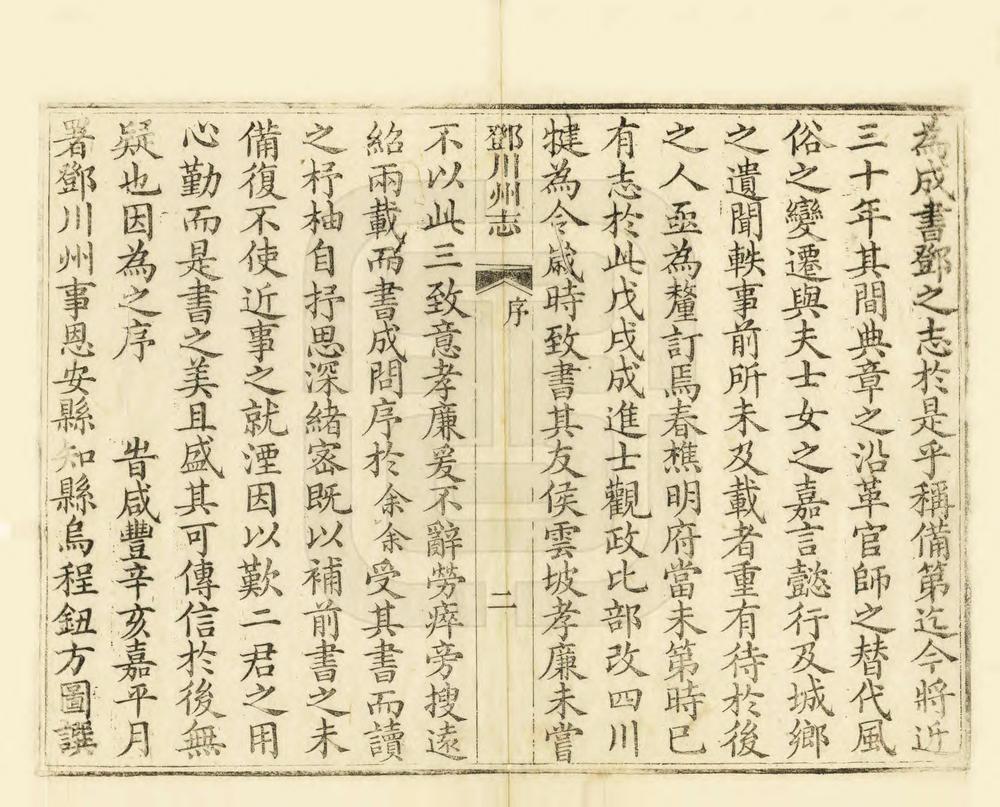 為成書鄧之志於是乎稱備第迄今將近
三十年其間典章之沿革官師之替代風
俗之變遷與夫士女之嘉言懿行及城鄉
之遺聞軼事前所未及載者重有待於後
之人亟為釐訂焉春樵明府當未第時已
有志於此戊戌成進士觀政比部改四川
犍為令歲時致書其友侯雲坡孝廉未嘗
鄧川州志
序
二
不以此三致意孝廉爰不辭勞瘁旁搜遠
紹兩載而書成問序於余余受其書而讀
之杼柚自抒思深緒密既以補前書之未
備復不使近事之就湮因以歎二君之用
心勤而是書之美且盛其可傳信於後無
疑也因為之序　旹咸豐辛亥嘉平月
署鄧川州事恩安縣知縣烏程鈕方圖譔